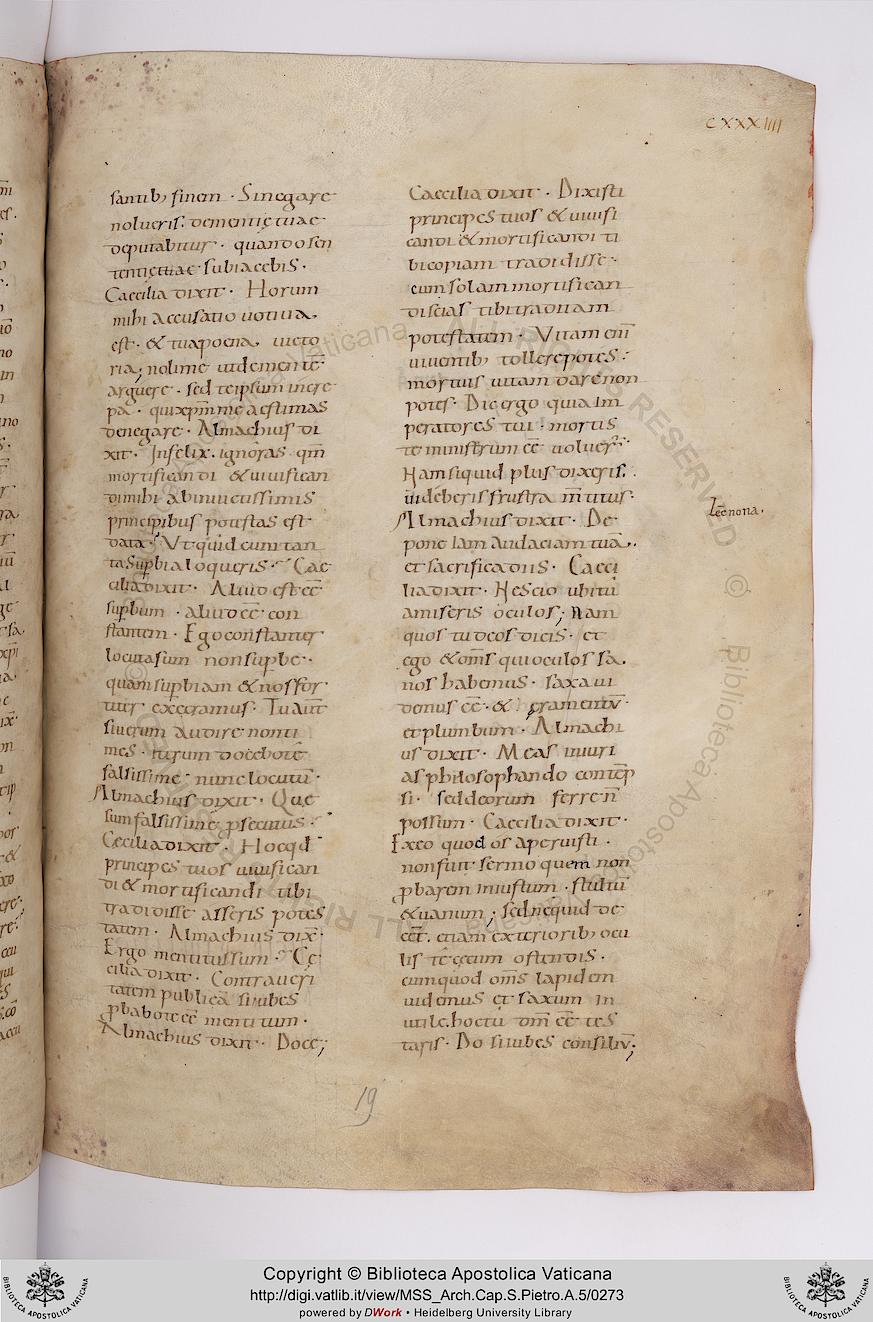 CXXXIIII
santib; finem · Si negare
nolueris · dementię tuae
deputabitur · quando sen
tentię tuae subiacebis ·
Caecilia dixit · Horum
mihi accusatio uotiua
est · & tua poena uicto
ria; noli me ut dementē
arguere · sed te ipsum incre
pa · qui xp̄m me aestimas
denegare · Almachius di
xit · Infelix · ignoras qm̄
mortificandi & uiuifican
di mihi ab inuictissimis
principibus potestas est
data · Ut quid cum tan
ta supbia loqueris · Cae
cilia dixit · Aliud est eē
supbum · aliud eē con
stantem · Ego constanter
locuta sum non supbe ·
quam supbiam & nos for
titer execramus · Tu aūt
si uerum audire non ti
mes · rursum docebo tē
falsissime nunc locutū ·
Almachius dixit · Que
sum falsissime psecutus ·
Cecilia dixit · Hoc qd
principes tuos uiuifican
di & mortificandi tibi
tradidisse asseris potes
tatem · Almachius dix̄ ·
Ergo mentitus sum · Ce
cilia dixit · Contra ueri
tatem publicā si iubes
pbabo te eē mentitum ·
Almachius dixit · Doce;
Caecilia dixit · Dixisti
principes tuos & uiuifi
candi & mortificandi ti
bi copiam tradidisse ·
cum solam mortifican
di scias tibi traditam
potestatem · Vitam enī
uiuentib; tollere potes ·
mortuis uitam dare non
potes · Dic ergo quia im
peratores tui · mortis
te ministrum eē uoluer
Nam si quid plus dixeris ·
uideberis frustra mtitus ·
Almachius dixit · De
pone iam audaciam tuā ·
et sacrifica diis · Caeci
lia dixit · Nescio ubi tu
amiseris oculos; nam
quos tu deos dicis · et
ego & om̄s qui oculos sa
nos habemus · saxa ui
demus eē · & eramentū ·
et plumbum · Almachi
us dixit · Meas iniuri
as philosophando contēp
si · sed deorum ferre n̄
possum · Caecilia dixit ·
Ex eo quod os aperuisti ·
non fuit sermo quem non
pbarem iniustum · stultū
& uanum; sed ne quid de
eēt · etiam exteriorib; ocu
lis te cęcum ostendis ·
cum quod om̄s lapidem
uidemus et saxum in
utile · hoc tu dm̄ eē tes
taris · Do si iubes consiliū ·
Lec nona ·
19
Copyright © Biblioteca Apostolica Vaticana
http://digi.vatlib.it/view/MSS_Arch.Cap.S.Pietro.A.5/0273
powered by DWork • Heidelberg University Library